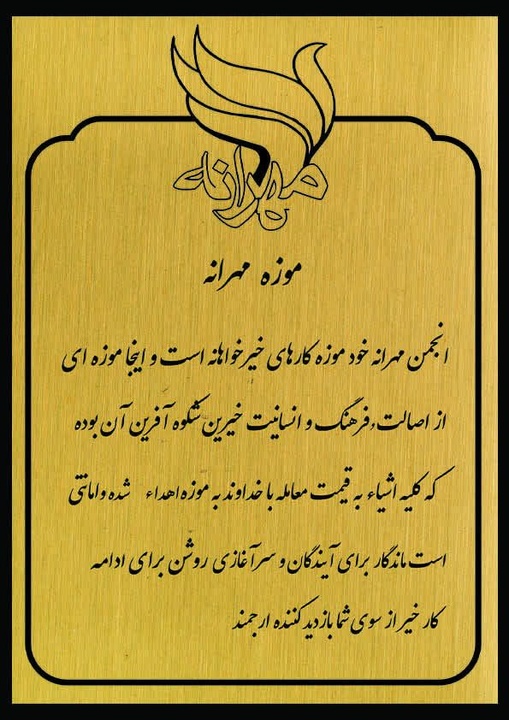 مهرانه
موزه مهرانه
انجمن مهرانه خود موزه کارهای خیرخواهانه است و اینجا موزه ای
از اصالت،فرهنگ و انسانیت خیرین شکوه آفرین آن بوده
که کلیه اشیاء به قیمت معامله با خداوند به موزه اهداء شده وامانتی
است ماندگار برای آیندگان و سرآغازی روشن برای ادامه
کار خیر از سوی شما بازدید کننده ارجمند